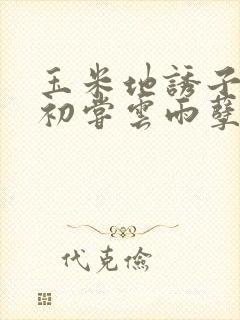 玉米地誘子
初嘗雲雨孽
代克儉